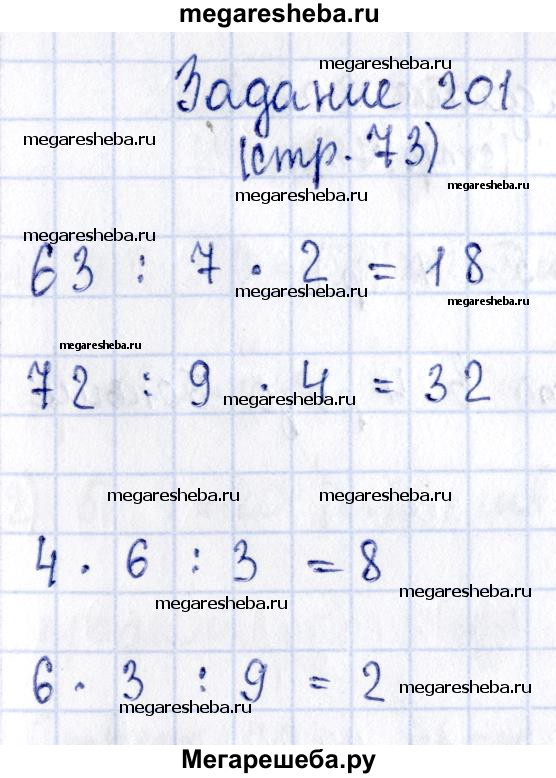 megaresheba.ru
megaresheba.ru
Задание 201
megaresheba.ru
megaresheba.ru
(стр. 73)
megaresheba.ru
megaresheba.ru
63 : 7 · 2 = 18
megaresheba.ru
megaresheba.ru
megaresheba.ru
72 : 9 · 4 = 32
megaresheba.ru
megaresheba.ru
megaresheba.ru megaresheba.ru
4 · 6 : 3 = 8
megaresheba.ru
megaresheba.ru
6 · 3 : 9 = 2
megaresheba.ru
megaresheba.ru
Мегарешеба.ру